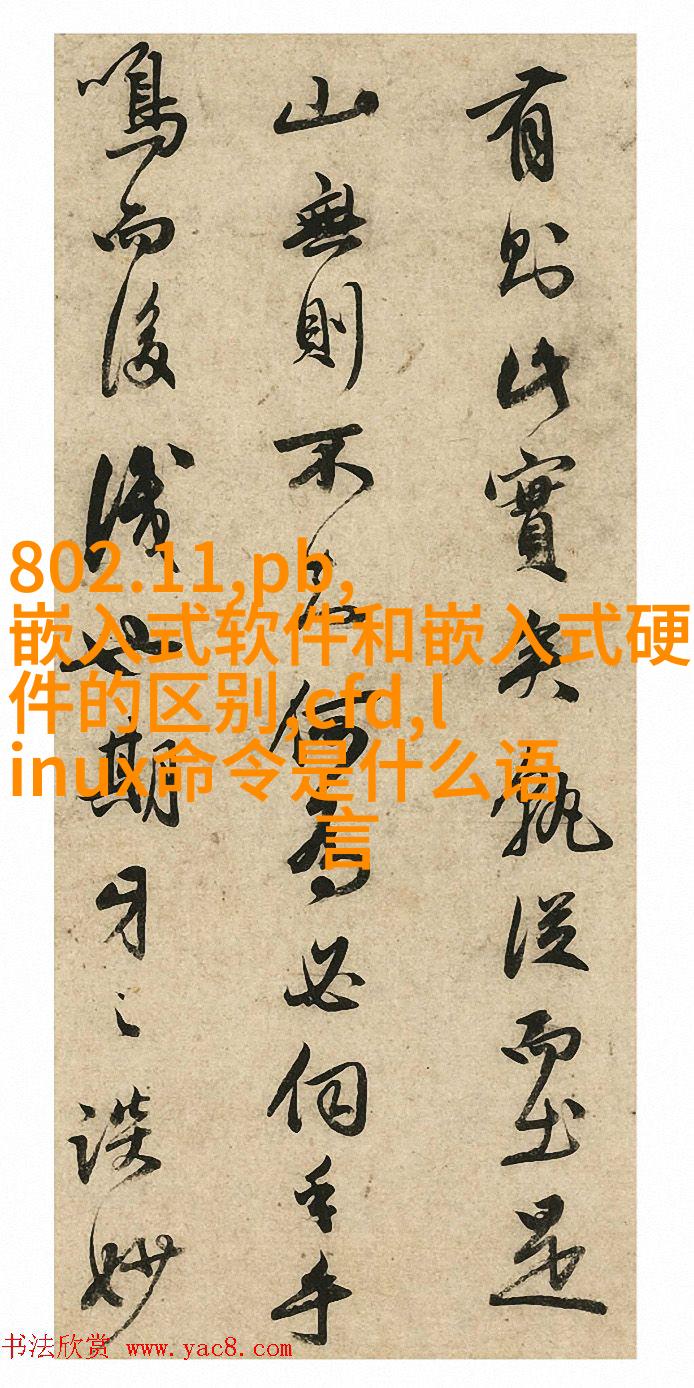 有則此實矣孰從而出是
山無則不見何為必伺手手
鳴而後識也期牙之談妙
802.11,pb,
嵌入式软件和嵌入式硬
件的区别,cfd,l
inux命令是什么语
言
书法欣赏 www.yac8.com